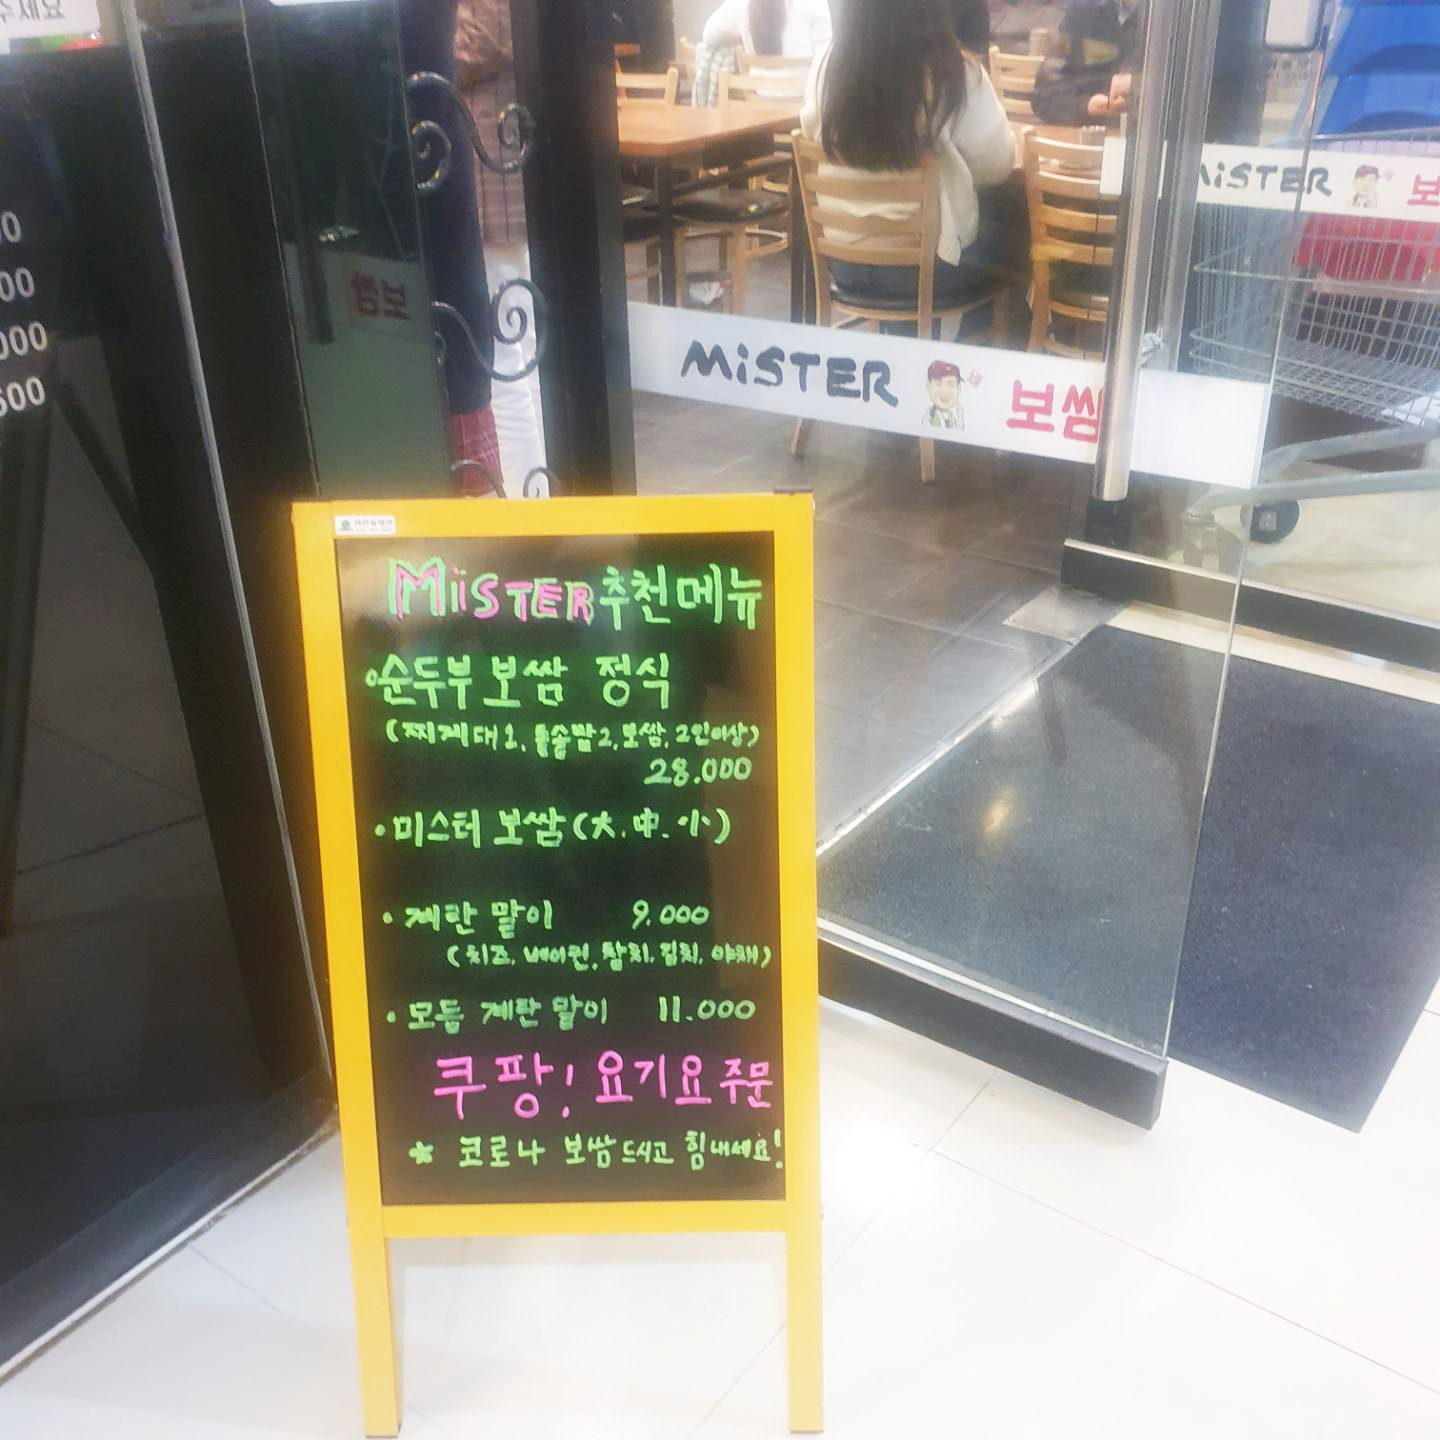 주세요
00
000
500
보쌈
MiSTER 보쌈
MiSTER 보
MiiSTER 추천메뉴
순두부 보쌈 정식
(찌게대1, 돌솥밥2, 보쌈, 2인이상)
28.000
· 미스터 보쌈 (大. 中. 小)
· 계란 말이 9.000
(치즈, 베이컨, 참치, 김치, 야채)
· 모듬 계란 말이 11.000
쿠팡! 요기요 주문
★ 코로나 보쌈드시고 힘내세요!